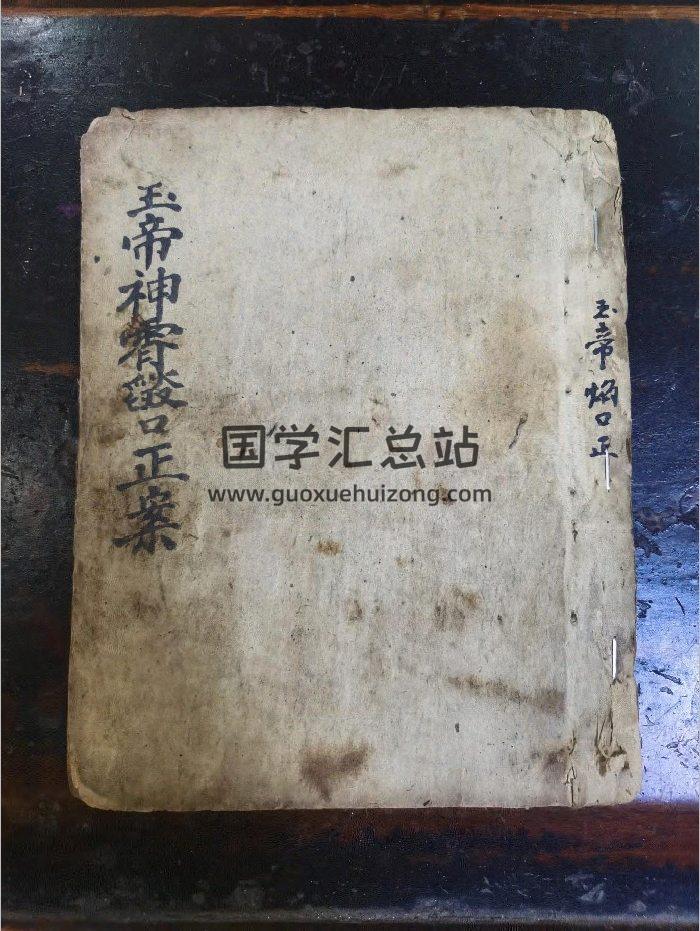 玉帝焰口正
玉帝神霄燄口正案
国学汇总站
www.guoxuehuizong.com